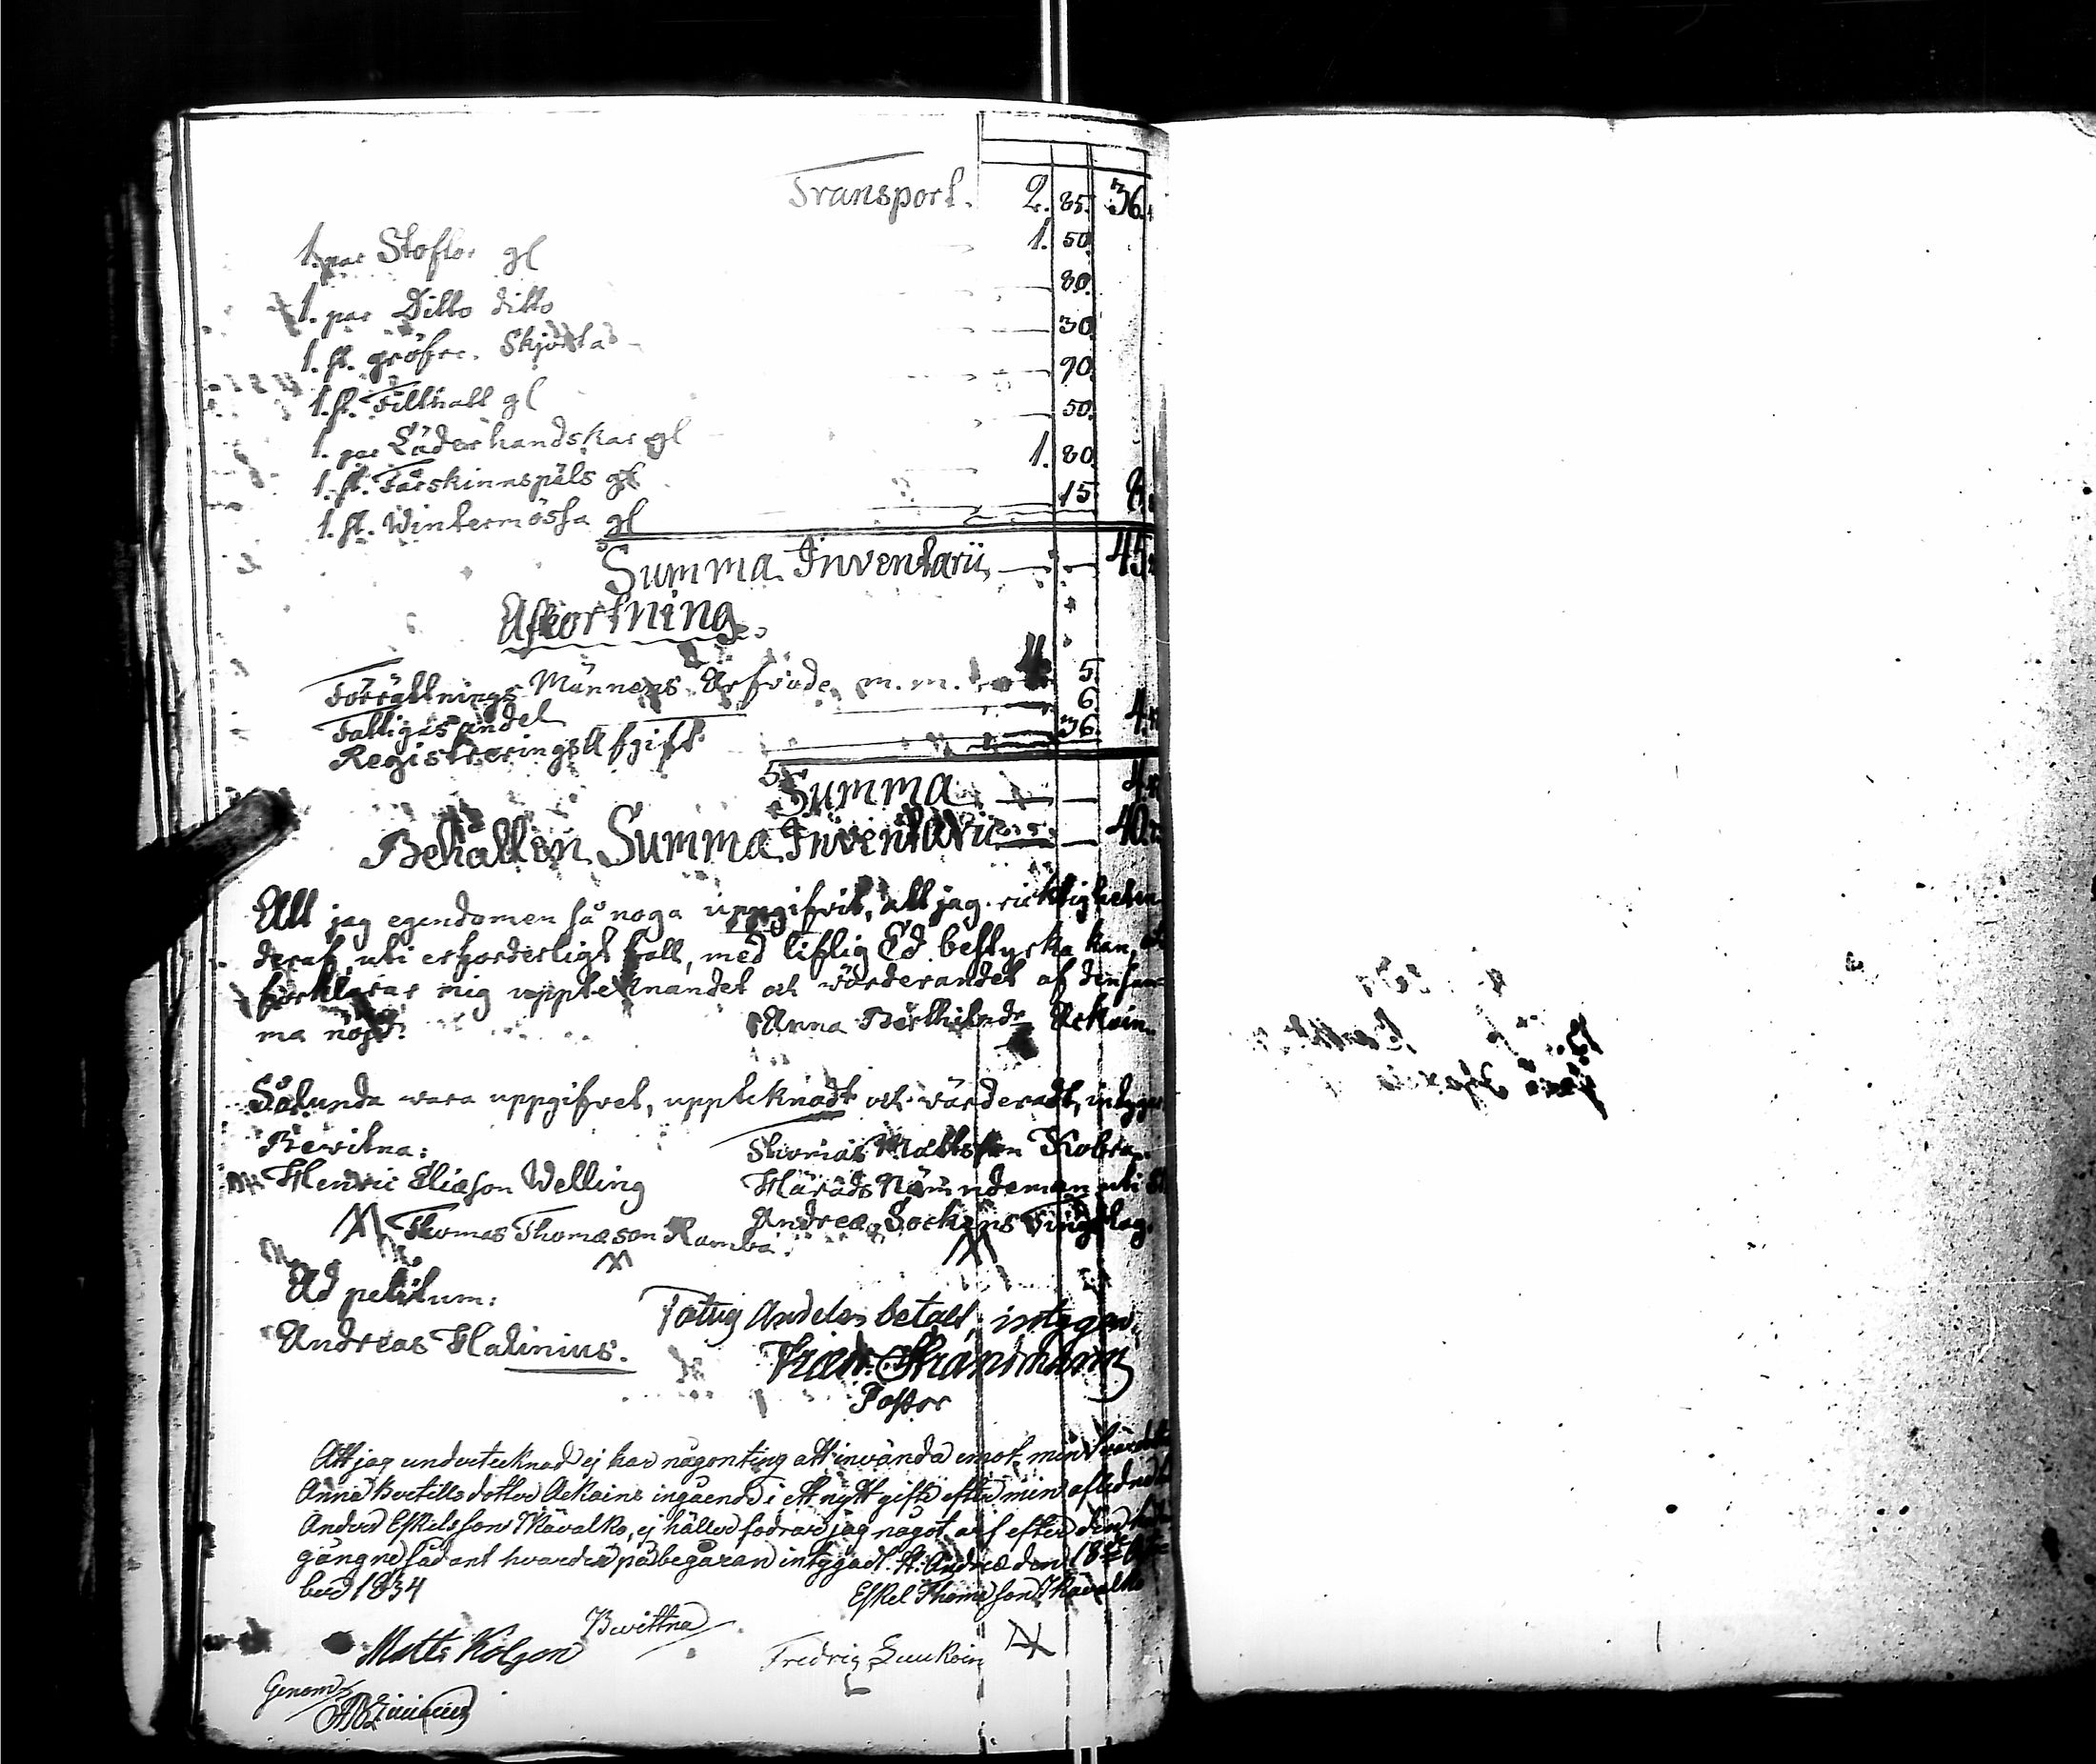 Transport. 2. 85. 36.
1. par Stoflor gl 1. 50
1. par Ditto ditto 80.
1. st. gröfre Skjorta 30
1. st. Filthatt gl 90
1. par Läderhandskar gl 50.
1. st. Fårskinnspäls gl 1. 80.
1. st. Wintermössa gl 15 8.
Summa Inventarii 45
Afkortning.
Förrättnings Männens Arfvode, m. m. 5.
Fattiges andel 6.
Registrerings Afgift 36 4
Summa 4
Behållen Summa Inventarii 40
Att jag egendomen så noga uppgifvit, att jag ricktigheten
deraf, uti erforderligt fall, med liflig Ed bestyrka kan,
förklarar mig upptecknandet och värderandet af densam
ma nögd. Anna
Sålunda vara uppgifvet, upptecknadt och värderadt, intyga
Bevitna: Thomas Mattsson
Henric Eliason Welling Härads Nämndeman uti St
Thomas Thomason Andreæ Sockens Tingslag.
Ad petitum:
Fattig Andelen betalt, intygar,
Andreas Halinius.
Pastor
Att jag undertecknad ej har någonting att invända emot min
Anna Bertills dotter Ackains ingående i ett nytt gifte efter min aflidne
Anders Eskelsson ej häller fodrar jag något arf efter den
gångne sådant varder på begäran intygadt. St. Andreæ den 18
ber 1834 Eskel Thomasson
Bevittna
Matts Fredrig
Genom